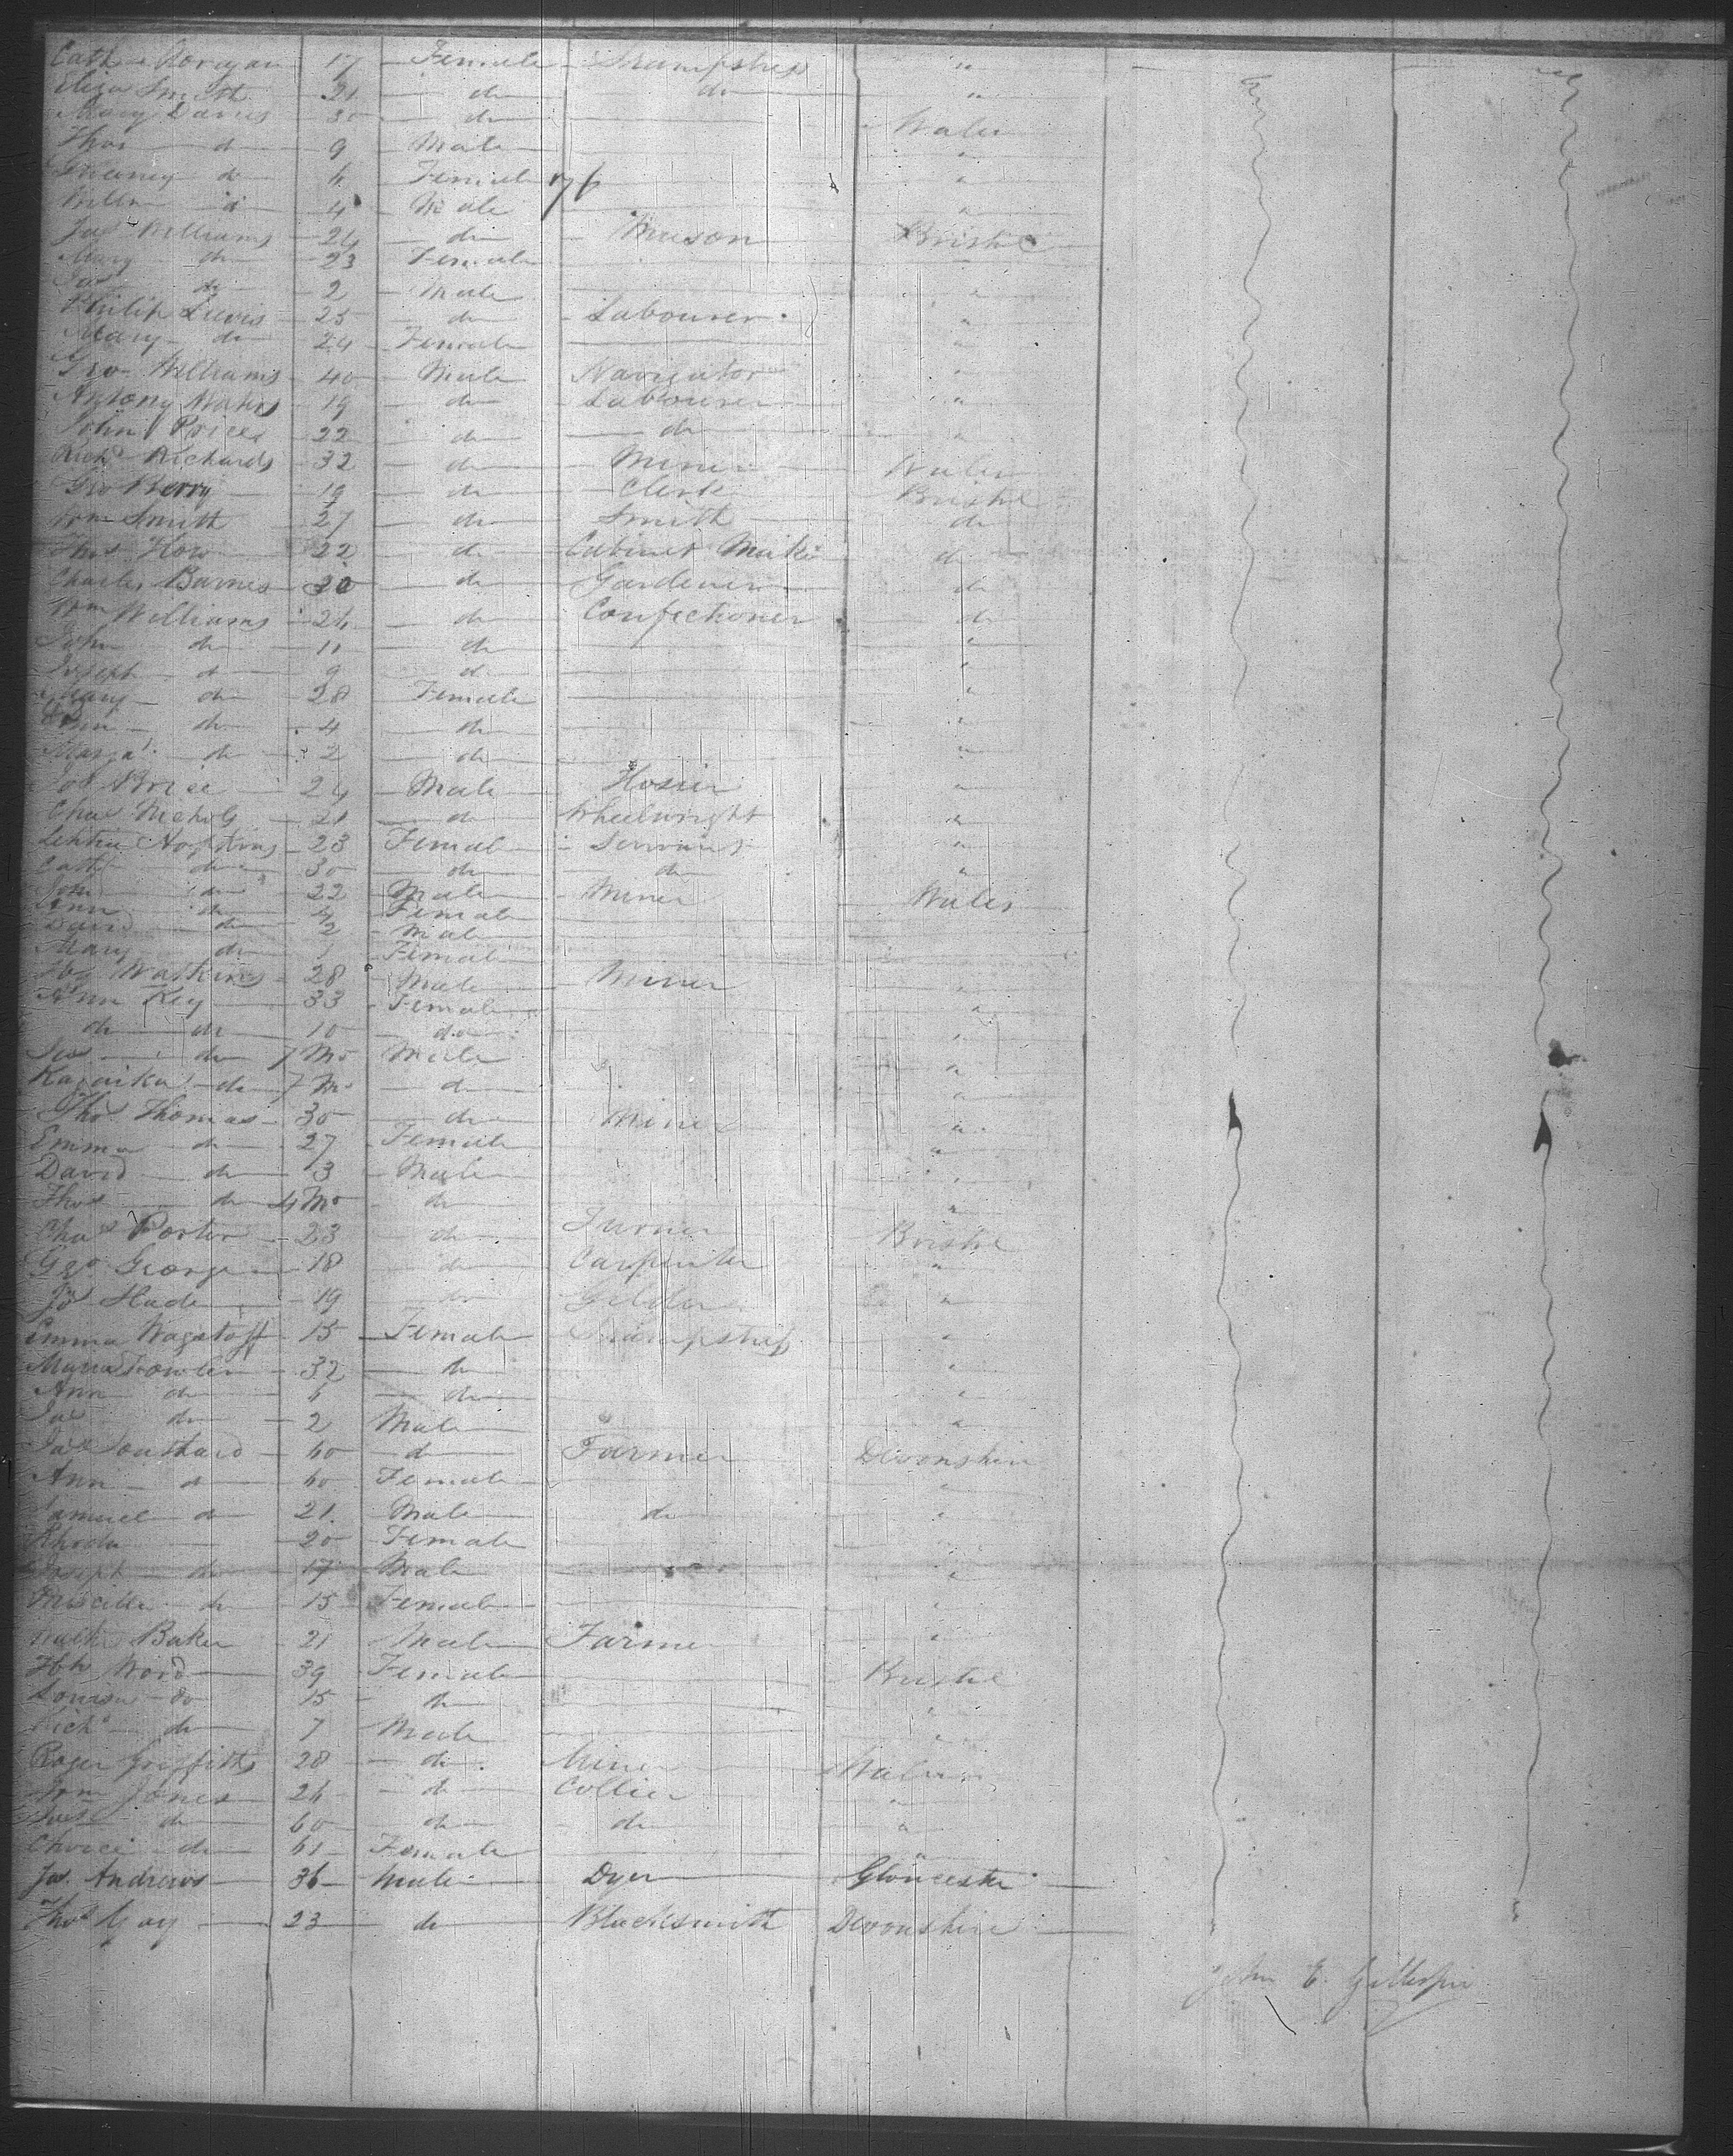 Cath Morgan 17 Female Seampstress "
Eliza Smith 21 do do "
Mary Davies 30 do Wales
Thos do 9 Male "
do 6 Female 76 "
Willm do 4 Male "
Jas Williams 24 do Mason Bristol
Mary do 23 Female "
Jas do 2 Male "
Philip Lewis 25 do Labourer "
Mary do 24 Female "
Geo Williams 40 Male Navigator "
Antony Waters 19 do Labourer "
John Price 22 do do "
Richd Richards 32 do Miner Wales
Geo Berry 19 do Clerk Bristol
Wm Smith 27 do Smith do
Thos How 22 do Cabinet Maker do
Charles Barnes 30 do Gardener do
Wm Williams 26 do Confectioner do
John do 11 do "
Joseph do 9 do "
Mary do 28 Female "
Ann do 4 do "
Margat do 2 do "
Price 24 Male Hosier "
Chas Nichols 21 do Wheelwright "
Letitia Hopkins 23 Female Servant "
Cath do 30 do do "
do 22 Male Miner Wales
Ann do 4 Female
David do 2 Male
Mary do 1 Female "
Watkins 28 Male Miner "
Ann Key 33 Female "
do do 10 do "
Jas do 7 Mo Male "
do 7 Mo do "
Thos Thomas 30 do Miner "
Emma do 27 Female "
David do 3 Male "
Thos do 4 Mo do "
Chas Porter 23 do Turner Bristol
Geo George 18 do Carpenter "
Slade 19 do Gilder "
Emma Wagstaff 15 Female Seampstress "
Maria Fowler 32 do "
Ann do 6 do "
Jas do 2 Male "
60 do Farmer Devonshire
Ann do 60 Female "
Samuel do 21 Male do "
Rhoda 20 Female "
Joseph do 17 Male "
Priscilla do 15 Female "
Baker 21 Male Farmer "
Word 39 Female Bristol
Louisa do 15 do "
Richd do 7 Male "
Roger Griffiths 28 do Miner Wales
Wm Jones 26 do Collier "
do 60 do do "
do 61 Female "
Jas. Andrews 36 Male Dyer Gloucester
Thos Gay 23 do Blacksmith Devonshire
John E. Gillespie